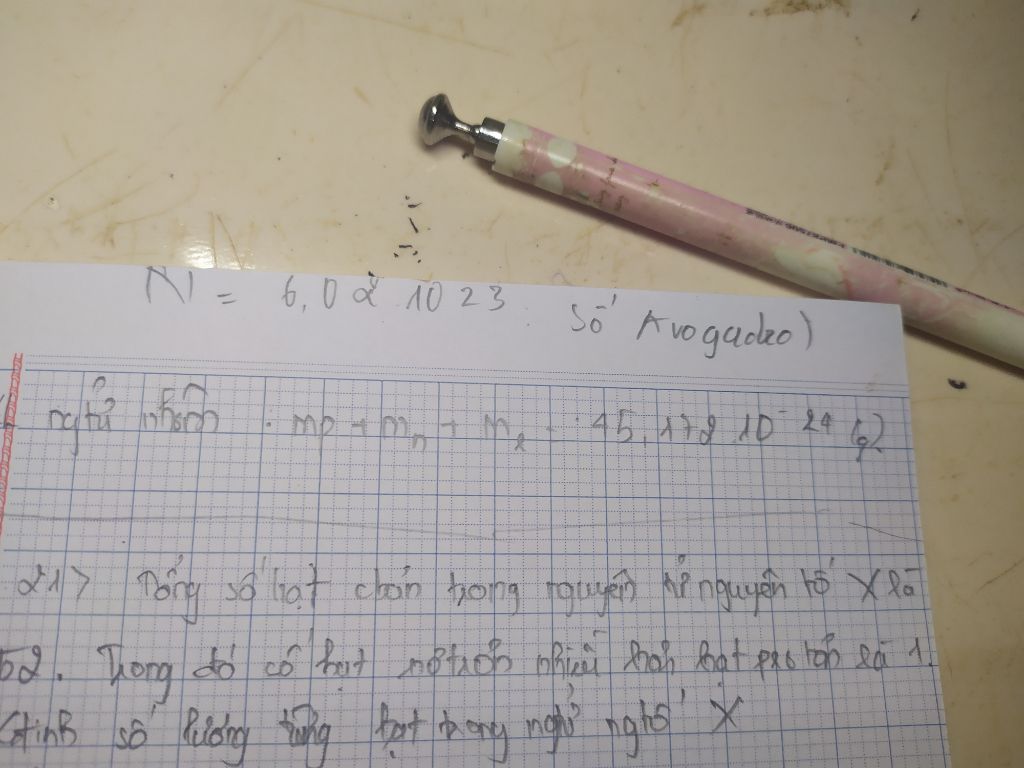 N = 6,02 10 23 . số Avogadro)
ngtử nhôm : mp + mn + me = 45,172 10 -24 (g)
21> Tổng số hạt cbản trong nguyên tử nguyên tố X là
52. Trong đó số hạt nơtron nhiều hơn hạt proton là 1.
tính số lượng từng hạt trong ngtử ngtố X